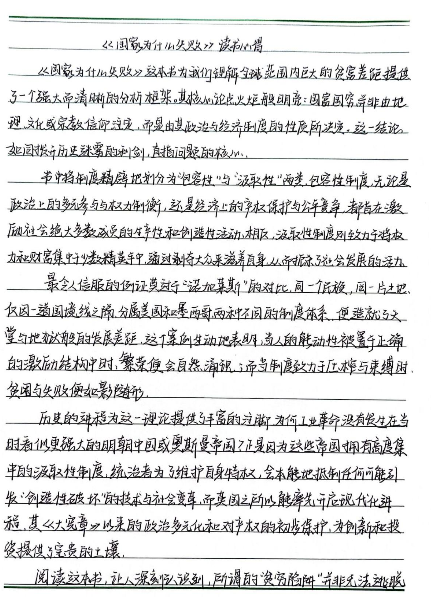 《国家为什么失败》读书心得
《国家为什么失败》这本书为我们理解全球范围内巨大的贫富差距提供
了一个强大而清晰的分析框架。其核心论点火炬般明亮：国富国穷并非由地
理、文化或宗教信仰注定，而是由其政治与经济制度的性质所决定。这一结论，
如同拨开历史迷雾的利剑，直指问题的核心。
书中将制度精辟地划分为“包容性”与“汲取性”两类。包容性制度，无论是
政治上的多元参与与权力制衡，还是经济上的产权保护与公平竞争，都旨在激
励社会绝大多数成员的生产性和创造性活动。相反，汲取性制度则致力于将权
力和财富集中于少数精英手中，通过剥夺大众来滋养自身，从而扼杀了社会发展的活力。
最令人信服的例证莫过于“诺加莱斯”的对比。同一个民族，同一片土地，
仅因一道国境线之隔，分属美国和墨西哥两种不同的制度体系，便造就了天
堂与地狱般的发展差距。这个案例生动地表明，当人的能动性被置于正确
的激励结构中时，繁荣便会自然涌现；而当制度致力于压榨与束缚时，
贫困与失败便如影随形。
历史的进程为这一理论提供了丰富的注脚。为何工业革命没有发生在当
时看似更强大的明朝中国或奥斯曼帝国？正是因为这些帝国拥有高度集
中的汲取性制度，统治者为了维护自身特权，会本能地抵制任何可能引
发“创造性破坏”的技术与社会变革。而英国之所以能率先开启现代化进
程，其《大宪章》以来的政治多元化和对产权的初步保护，为创新和投
资提供了宝贵的土壤。
阅读这本书，让人深刻认识到，所谓的“贫穷陷阱”并非无法逃脱